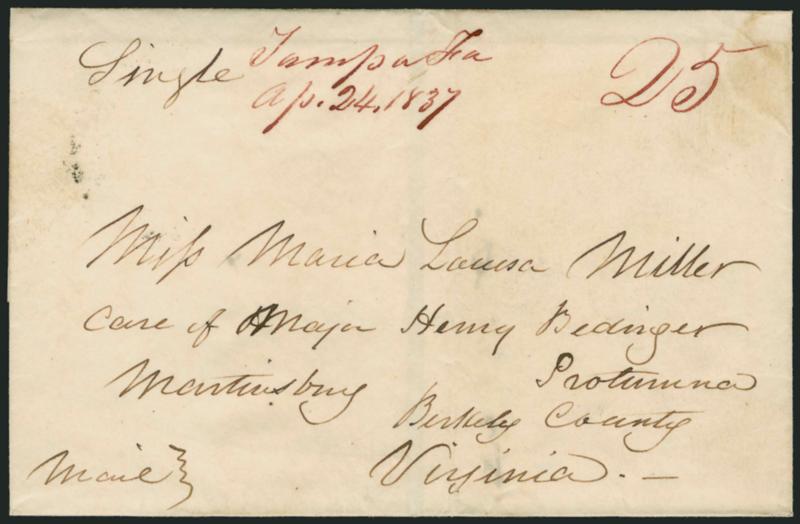 Single Tampa Fa 25
Ap. 24, 1837
Miss Maria Louisa Miller
Care of Major Henry Bedinger
Martinsburg Protumna
Berkeley County
Virginia. —
Mail